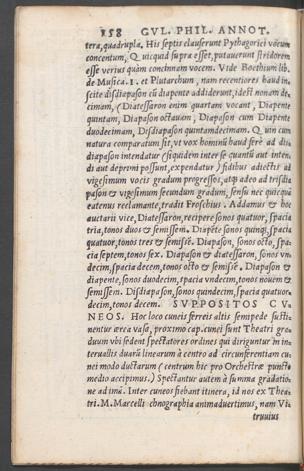 158 GVL. PHIL. ANNOT.
tera, quadrupla. His septis clauserunt Pythagorici vocum
concentum, Q uicquid supra esset, putauerunt stridorem
esse verius quàm concinnam vocem. Vide Boethium lib.
de Musica. 1. et Plutarchum, nam recentiores haud in,
scite disdiapason cũ diapente addiderunt, idest nonam de,
cimam, (Diatessaron enim quartam vocant, Diapente
quintam, Diapason octauam, Diapason cum Diapente
duodecimam, Disdiapason quintamdecimam. Q uin cum
natura comparatum sit, vt vox hominũ haud ferè ad dis
diapason intendatur (siquidem inter se quantũ aut inten,
di aut deprimi possunt, expendatur) fidibus adiectis ad
vigesimum vocis gradum progressos, atq; adeo ad trisdia
pason & vigesimum secundum gradum, sensu nec quicquã
eatenus reclamante, tradit Froschius. Addamus & hoc
auctarii vice, Diatessaron, recipere sonos quatuor, spacia
tria, tonos duos & semissem. Diapẽte sonos quinq;, spacia
quatuor, tonos tres & semissẽ. Diapason, sonos octo, spa
cia septem, tonos sex. Diapason & diatessaron, sonos vn,
decim, spacia decem, tonos octo & semissẽ. Diapason &
diapente, sonos duodecim, spacia vndecim, tonos nouem &
semissem. Disdiapason, sonos quindecim, spacia quatuor,
decim, tonos decem. SVPPOSITOS CV,
NEOS. Hoc loco cunei ferreis altis semipede susti,
nentur ærea vasa, proximo cap. cunei sunt Theatri gra,
duum vbi sedent spectatores ordines qui diriguntur in in,
teruallis duarũ linearum à centro ad circunferentiam cu,
nei modo ductarum ( centrum hic pro Orchestræ puncto
medio accipimus.) Spectantur autem à summa gradatio,
ne ad imã. Inter cuneos fiebant itinera, id nos ex Thea,
tri. M. Marcelli ichnographia animaduertimus, nam Vi,
truuius